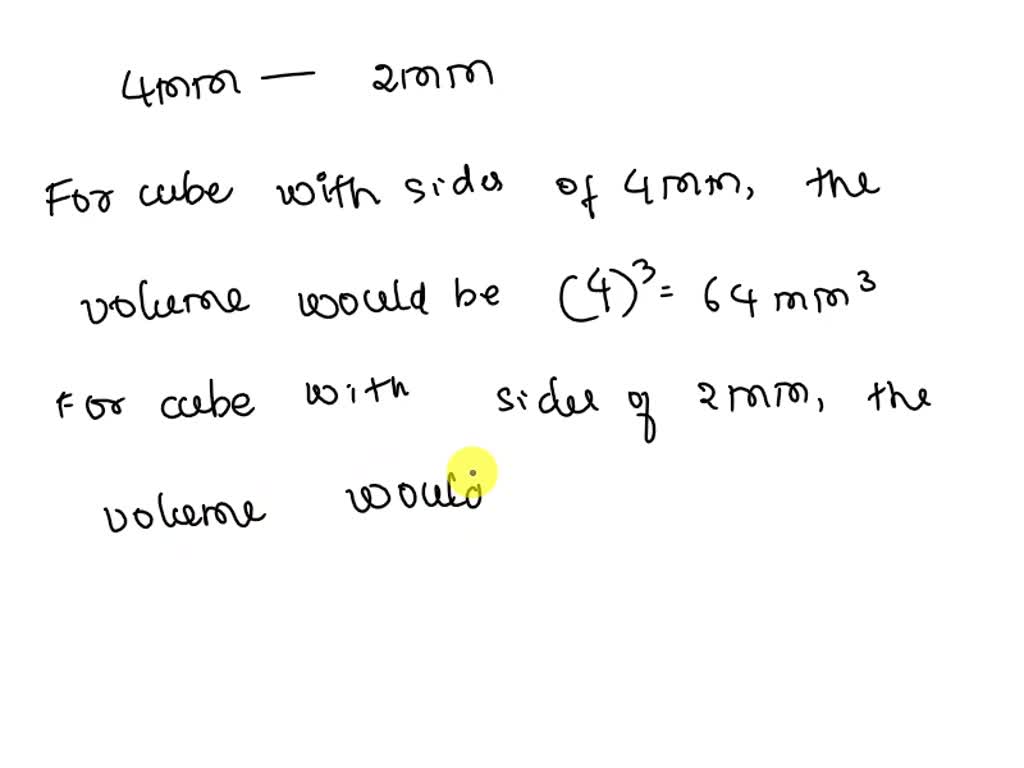 4mm — 2mm
For cube with sides of 4mm, the
volume would be (4)³ = 64 mm³
For cube with sides of 2mm, the
volume would